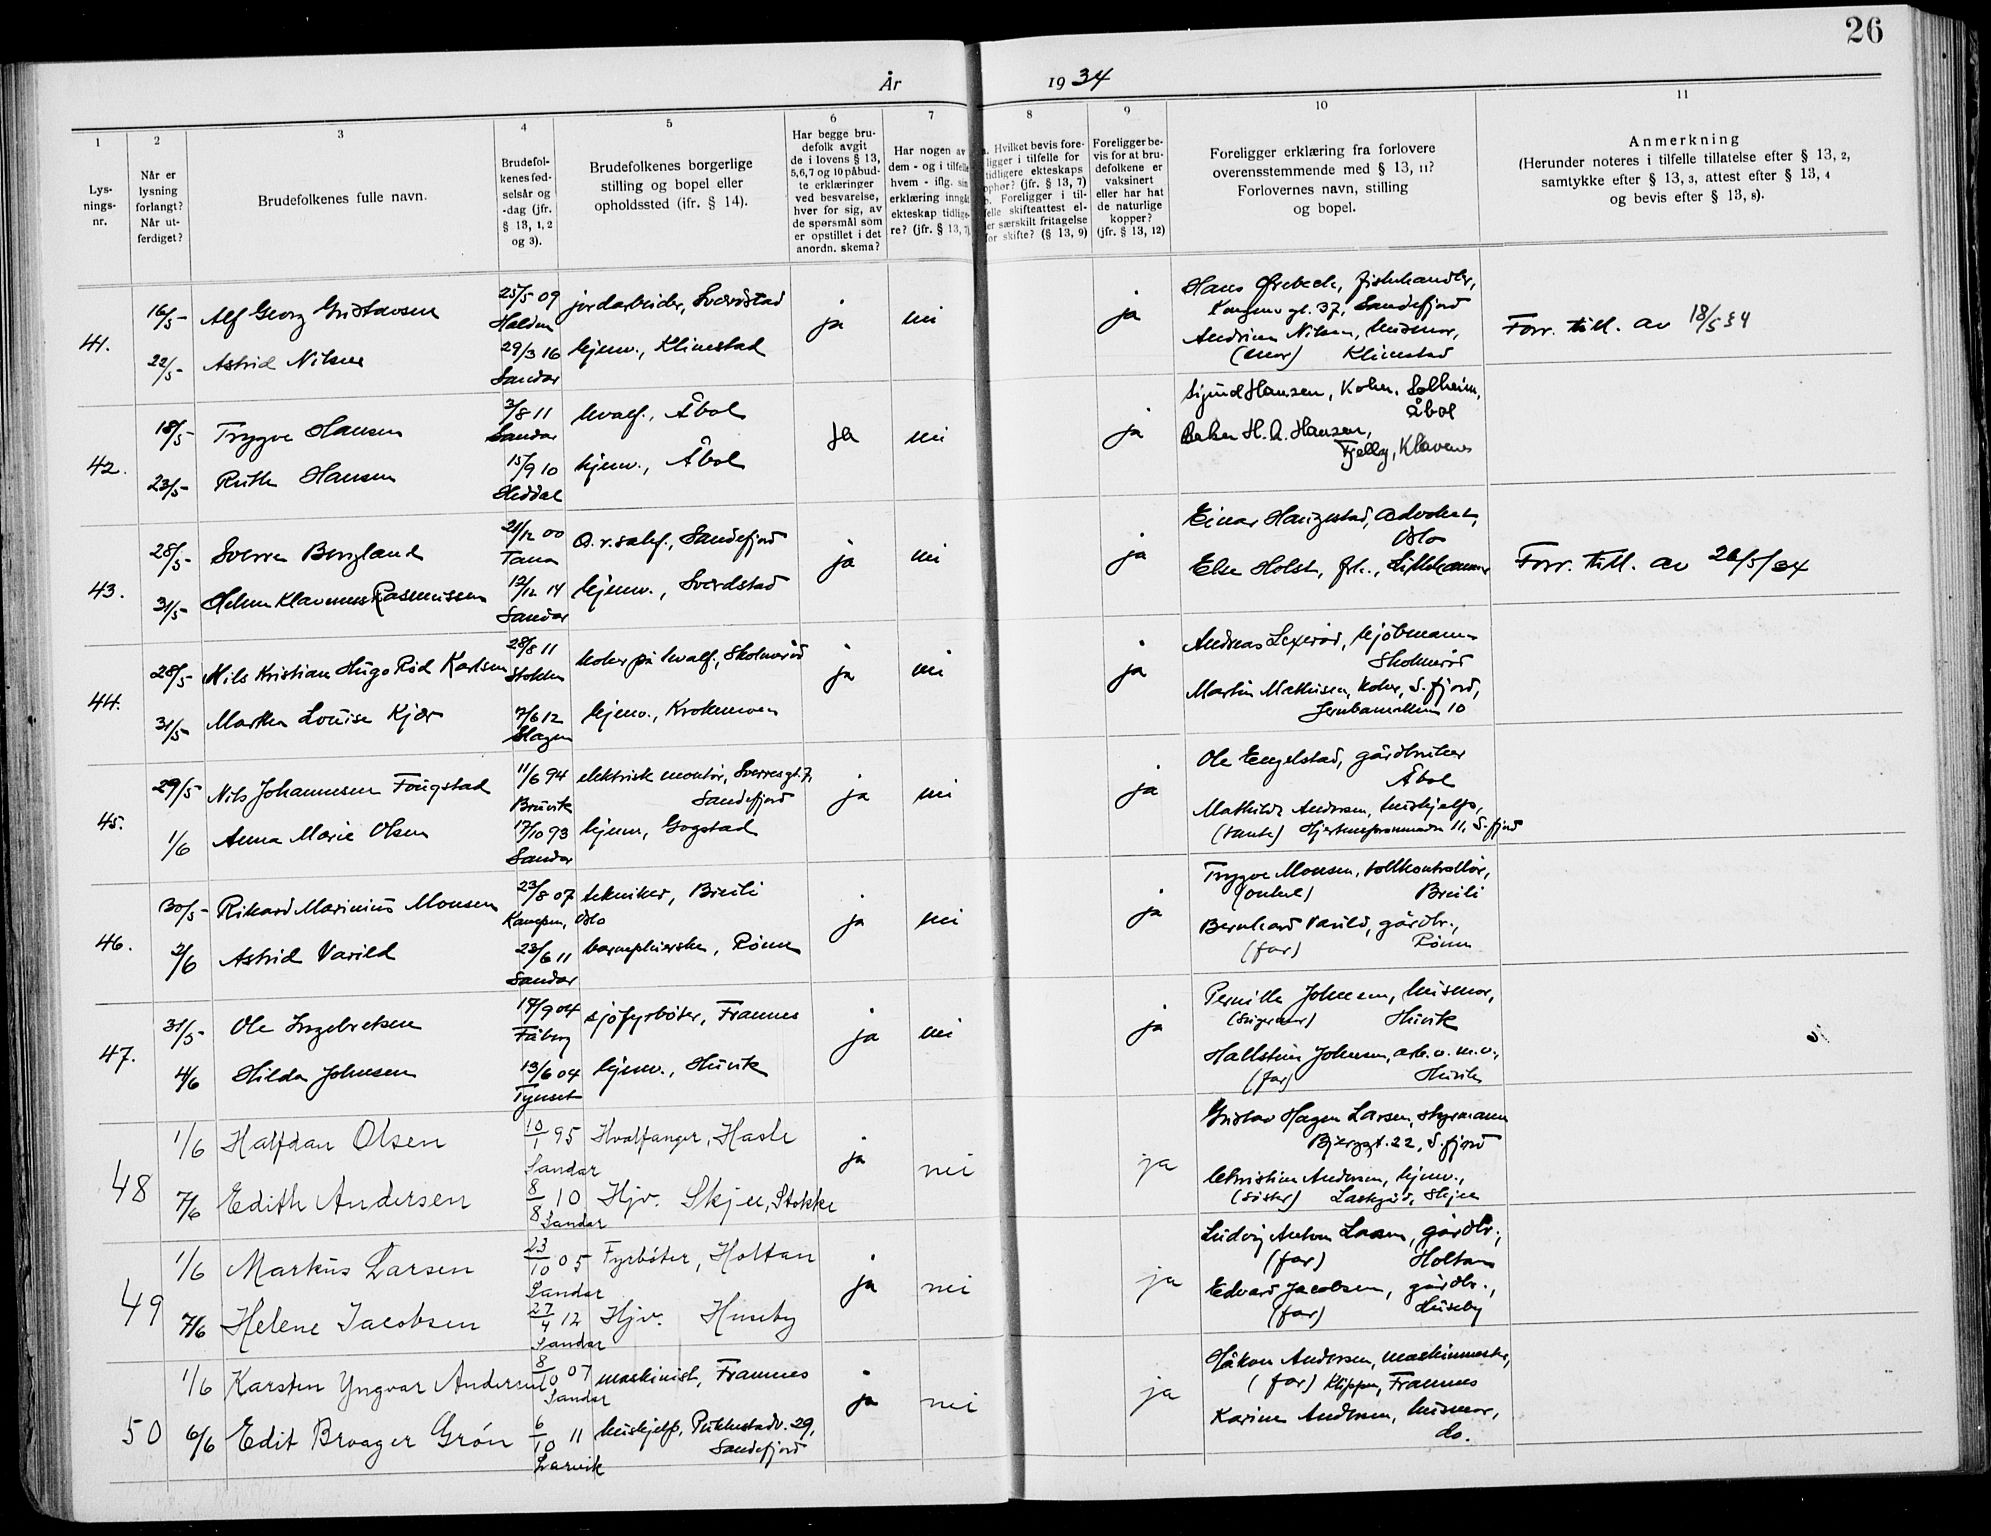 26
År 1934
1
2
3
4
5
6
7
8
9
10
11
Lys-
nings-
nr.
Når er
lysning
forlangt?
Når ut-
ferdiget?
Brudefolkenes fulle navn.
Brudefol-
kenes fød-
selsår og
-dag (jfr.
§ 13, 1, 2
og 3).
Brudefolkenes borgerlige
stilling og bopel eller
opholdssted (jfr. § 14).
Har begge bru-
defolk avgit
de i lovens § 13,
5, 6, 7 og 10 påbud-
te erklæringer
ved besvarelse,
hver for sig, av
de spørsmål som
er opstillet i det
anordn. skema?
Har nogen av
dem - og i tilfelle
hvem - iflg. sin
erklæring inngå
ekteskap tidlige-
re? (jfr. § 13, 7)
a. Hvilket bevis fore-
ligger i tilfelle for
tidligere ekteskaps
ophør? (jfr. § 13, 7)
b. Foreligger i til-
felle skifteattest el-
ler særskilt fritagelse
for skifte? (§ 13, 9)
Foreligger be-
vis for at bru-
defolkene er
vaksinert
eller har hat
de naturlige
kopper?
(jfr. § 13, 12)
Foreligger erklæring fra forlovere
overensstemmende med § 13, 11?
Forlovernes navn, stilling
og bopel.
Anmerkning
(Herunder noteres i tilfelle tillatelse efter § 13, 2,
samtykke efter § 13, 3, attest efter § 13, 4
og bevis efter § 13, 8).
41.
16/5- Alf Georg Gustavsen 25/5 09 jordarbeider, Sverdstad
Halden
22/5- Astrid Nilsen 29/3 16 hjemv., Klinestad
Sandar
ja nei ja
Hans Ørebech, fiskehandler,
Kongensgt. 37, Sandefjord
Andrine Nilsen, husmor,
(mor) Klinestad
Forr. till. av 18/5 34
42.
18/5- Trygve Hansen 3/8 11 hvalf., Åbol
Sandar
23/5- Ruth Hansen 15/9 10 hjemv., Åbol
Heddal
ja nei ja
Sigurd Hansen, Solheim,
Åbol
Baker H. A. Hansen,
Klavenes
43.
28/5- Sverre Bergland 21/12 00 O.r.sakf., Sandefjord
Tana
31/5- Klavenes Rasmussen 12/12 14 hjemv., Sverdstad
Sandar
ja nei ja
Einar Haugestad, advokat,
Oslo
Else Holst, frk., Lillehammer
Forr. till. av 26/5/34
44.
28/5- Nils Kristian Hugo Rød Karlsen 28/8 11 koker på hvalf., Skolmerød
Stokke
31/5- Marthe Louise Kjær 7/6 12 hjemv., Krokemoen
Slagen
ja nei ja
Andreas Lexerød, kjøbmann
Skolmerød
Martin Mathisen, koker, S.fjord,
Jernbanealleen 10
45.
29/5- Nils Johannesen Fougstad 11/6 94 elektrisk montør, Sverresgt. 7,
Bruvik Sandefjord
1/6 Anna Marie Olsen 17/10 93 hjemv, Gogstad
Sandar
ja nei ja
Ole Engelstad, gårdbruker
Åbol
Mathilde Andersen, hushjelp,
(tante) Hjertnespromenaden 11, S.fjord
46.
30/5- Rikard Marinius Monsen 23/8 07 tekniker, Breili
Kampen, Oslo
2/6 Astrid Varild 23/6 11 barnepleierske, Rønne
Sandar
ja nei ja
Trygve Monsen, tollkontrollør,
(onkel) Breili
Bernhard Varild, gårdbr.,
(far) Rønne
47.
31/5- Ole Ingebretsen 18/9 04 sjøfyrbøter, Framnes
Fåberg
4/6 Hilda Johnsen 13/6 04 hjemv., Huvik
Tynset
ja nei ja
Pernille Johnsen, husmor,
(svigermor) Huvik
Hallstein Johnsen, arb. o. m.v.,
(far) Huvik
48
1/6 Halfdan Olsen 10/1 95 Hvalfanger, Hasle
Sandar
7/6 Edith Andersen 8/8 10 Hjv. Skjee, Stokke
Sandar
ja nei ja
Gustav Hagen Larsen, styrmann
Bjerggt. 22, S.fjord
Christine Andersen, hjemv.,
(søster) Skjee
49
1/6 Markus Larsen 23/10 05 Fyrbøter, Holtan
Sandar
7/6 Helene Jacobsen 27/4 12 Hjv. Huseby
Sandar
ja nei ja
Ludvig Anton Larsen, gårdbr.,
(far) Holtan
Edvard Jacobsen, gårdbr.,
(far) Huseby
50
1/6 Karsten Yngvar Andersen 8/10 07 maskinist, Framnes
Sandar
6/6 Edit Broager Grøn 6/10 11 hushjelp, Pukkestadv. 29,
Larvik Sandefjord
ja nei ja
Håkon Andersen, maskinmester,
(far) Klippen, Framnes
Karine Andersen, husmor,
do.